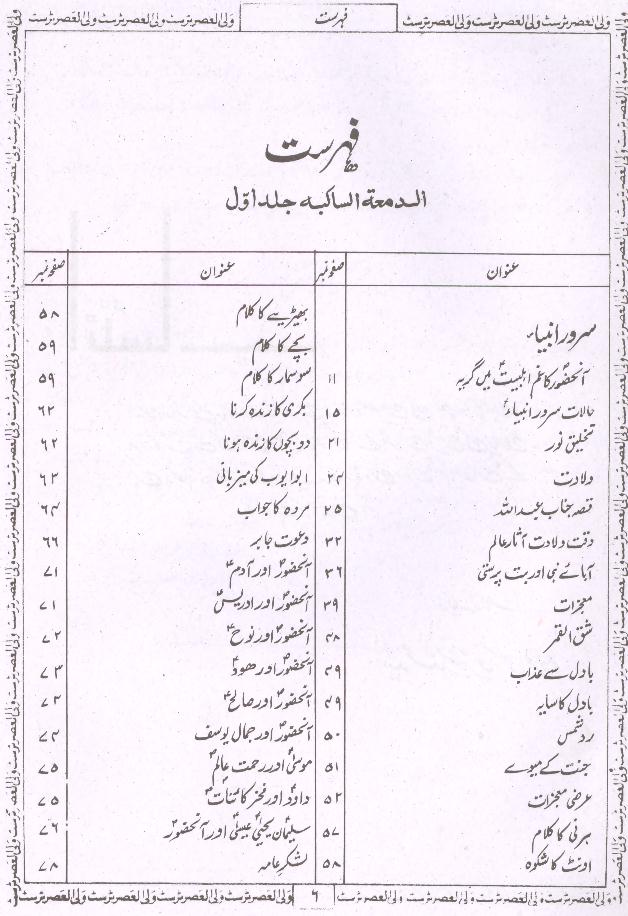 فہرست
ولی العصر ٹرسٹ ولی العصر ٹرسٹ ولی العصر ٹرسٹ
فہرست
الدمعۃ الساکبہ جلد اوّل
عنوان صفحہ نمبر
سرور انبیاءؐ
آنحضورؐ کا غم اہلبیتؑ میں گریہ ۱۱
حالات سرور انبیاءؐ ۱۵
تخلیق نور ۲۱
ولادت ۲۴
قصہ جناب عبداللہ ۲۵
وقت ولادت آثار عالم ۳۲
آبائے نبی اور بت پرستی ۳۶
معجزات ۳۹
شق القمر ۴۸
بادل سے عذاب ۴۹
بادل کا سایہ ۴۹
رد شمس ۵۰
جنت کے میوے ۵۱
عرضی معجزات ۵۲
ہرنی کا کلام ۵۷
اونٹ کا شکوہ ۵۸
عنوان صفحہ نمبر
بھیڑیے کا کلام ۵۸
بچے کا کلام ۵۹
سوسمار کا کلام ۵۹
بکری کا زندہ کرنا ۶۲
دو بچوں کا زندہ ہونا ۶۲
ابو ایوب کی میزبانی ۶۳
مردہ کا جواب ۶۴
دعوت جابر ۶۶
آنحضورؐ اور آدمؑ ۷۱
آنحضورؐ اور ادریسؑ ۷۱
آنحضورؐ اور نوحؑ ۷۲
آنحضورؐ اور ھودؑ ۷۳
آنحضورؐ اور صالحؑ ۷۳
آنحضورؐ اور جمال یوسف ۷۴
موسیٰؑ اور رحمت عالمؐ ۷۵
داودؑ اور فخر کائناتؐ ۷۵
سلیمانؑ یحییٰؑ عیسیٰؑ اور آنحضورؐ ۷۶
لشکر عامہ ۷۸
۶